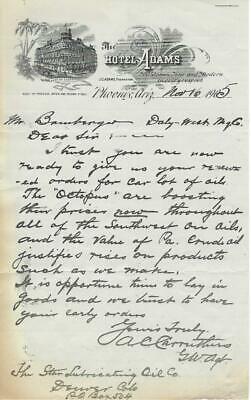 The
HOTEL ADAMS
J.C. ADAMS, PROPRIETOR
Phoenix, Ariz. Nov 16 1905
Mr. Bamberger Daly-West Mg Co.
Dear Sir:
I trust you are now
ready to give us your renew
ed orders for car lot of oils.
The "Octopus" are boosting
their prices now throughout
all of the Southwest on oils,
and the value of Pa. Crude oil
justifies rises on products
such as we make.
It is opportune time to lay in
goods and we trust to have
your early orders
Yours truly.
A C Carruthers
The Star Lubricating Oil Co.
Denver Colo
P.O. Box 504